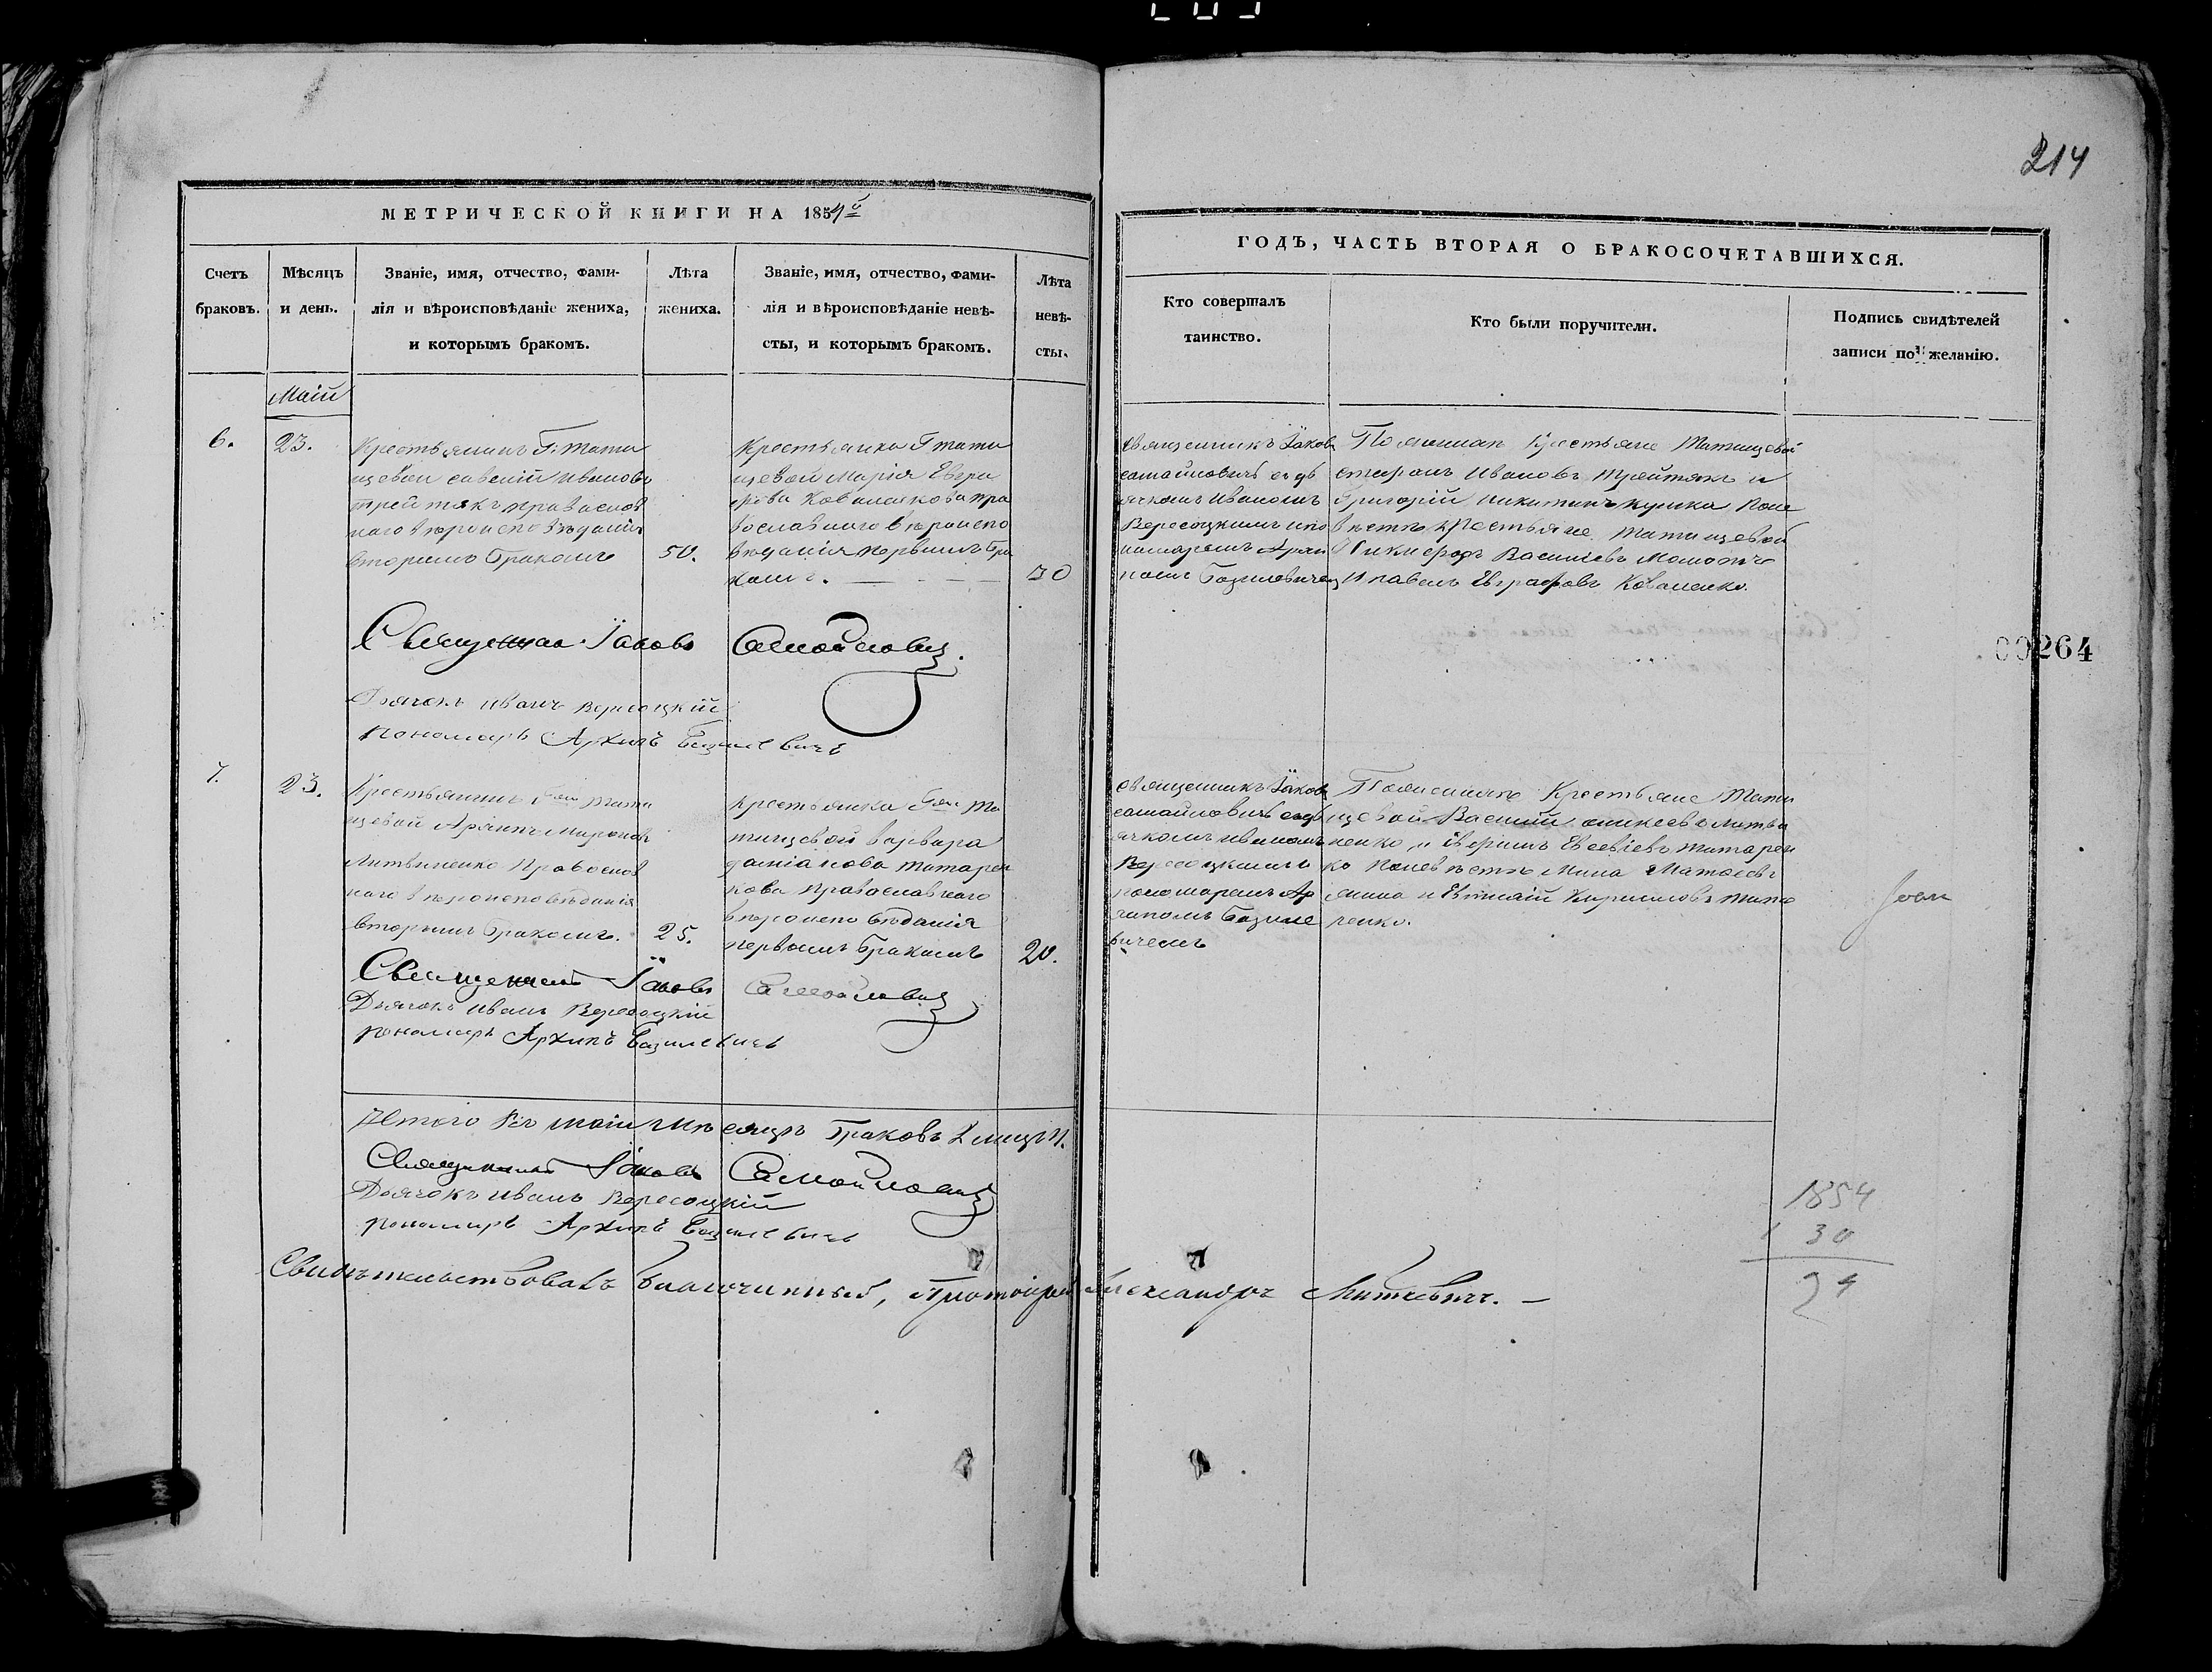 214
МЕТРИЧЕСКОЙ КНИГИ НА 1854й
ГОДЪ, ЧАСТЬ ВТОРАЯ О БРАКОСОЧЕТАВШИХСЯ.
Счетъ браковъ.
Мѣсяцъ и день.
Званіе, имя, отчество, фами-
лія и вѣроисповѣданіе жениха,
и которымъ бракомъ.
Лѣта
жениха.
Званіе, имя, отчество, фами-
лія и вѣроисповѣданіе невѣ-
сты, и которымъ бракомъ.
Лѣта
невѣ-
сты.
Кто совершалъ
таинство.
Кто были поручители.
Подпись свидѣтелей
записи по желанію.
Маій
6.
23.
Крестьянинъ Г. Тати
щевой Савелій Ивановъ
Трейтякъ православ
наго вѣроисповѣданія
вторымъ бракомъ
50.
Крестьянка Г Тати
щевой Марія Евгра
фова Коваленкова пра
вославнаго вѣроиспо
вѣданія первымъ бра
комъ.
30
Священникъ Іаковъ
Самойловичъ съ дь
ячкомъ Иваномъ
Вересоцкимъ и по
номаремъ Архи
помъ Базилевичем
По женихѣ Крестьяне Татищевой
Стефанъ Ивановъ Трейтякъ и
Григорій Никитинъ Кулика По не
вѣстѣ Крестьяне Татищевой
Никифоръ Васильевъ
и Павелъ Евграфовъ Коваленко.
Священникъ Іаковъ Самойловичъ.
Дьячокъ Иванъ Вересоцкій
Пономарь Архипъ Базилевичъ
00264
7.
23.
Крестьянинъ Г-жи Тати
щевой Архипъ Мироновъ
Литвиненко Православ
наго вѣроисповѣданія
вторымъ бракомъ.
25.
Крестьянка Г-жи Та
тищевой Варвара
Даміанова Титарен
кова Православнаго
вѣроисповѣданія
первымъ бракомъ
20.
Священникъ Іаковъ
Самойловичъ съ дь
ячкомъ Иваномъ
Вересоцкимъ
пономаремъ Ар
хипомъ Базиле
вичемъ
По женихѣ Крестьяне Тати
щевой Василій Алексеевъ Литви
ненко и Евсевіевъ Титарен
ко По невѣстѣ Мина Матвеевъ
и Кириловъ Тита
ренко.
Священникъ Іаковъ Самойловичъ
Дьячокъ Иванъ Вересоцкій
Пономарь Архипъ Базилевичъ
А Итого Въ Маіи мѣсяцѣ браковъ 2
Священникъ Іаковъ Самойловичъ
Дьячокъ Иванъ Вересоцкій
Пономарь Архипъ Базилевичъ
1854
30
24
Свидѣтельствовалъ Благочинный, Протоіерей Александръ Миткевичъ. –